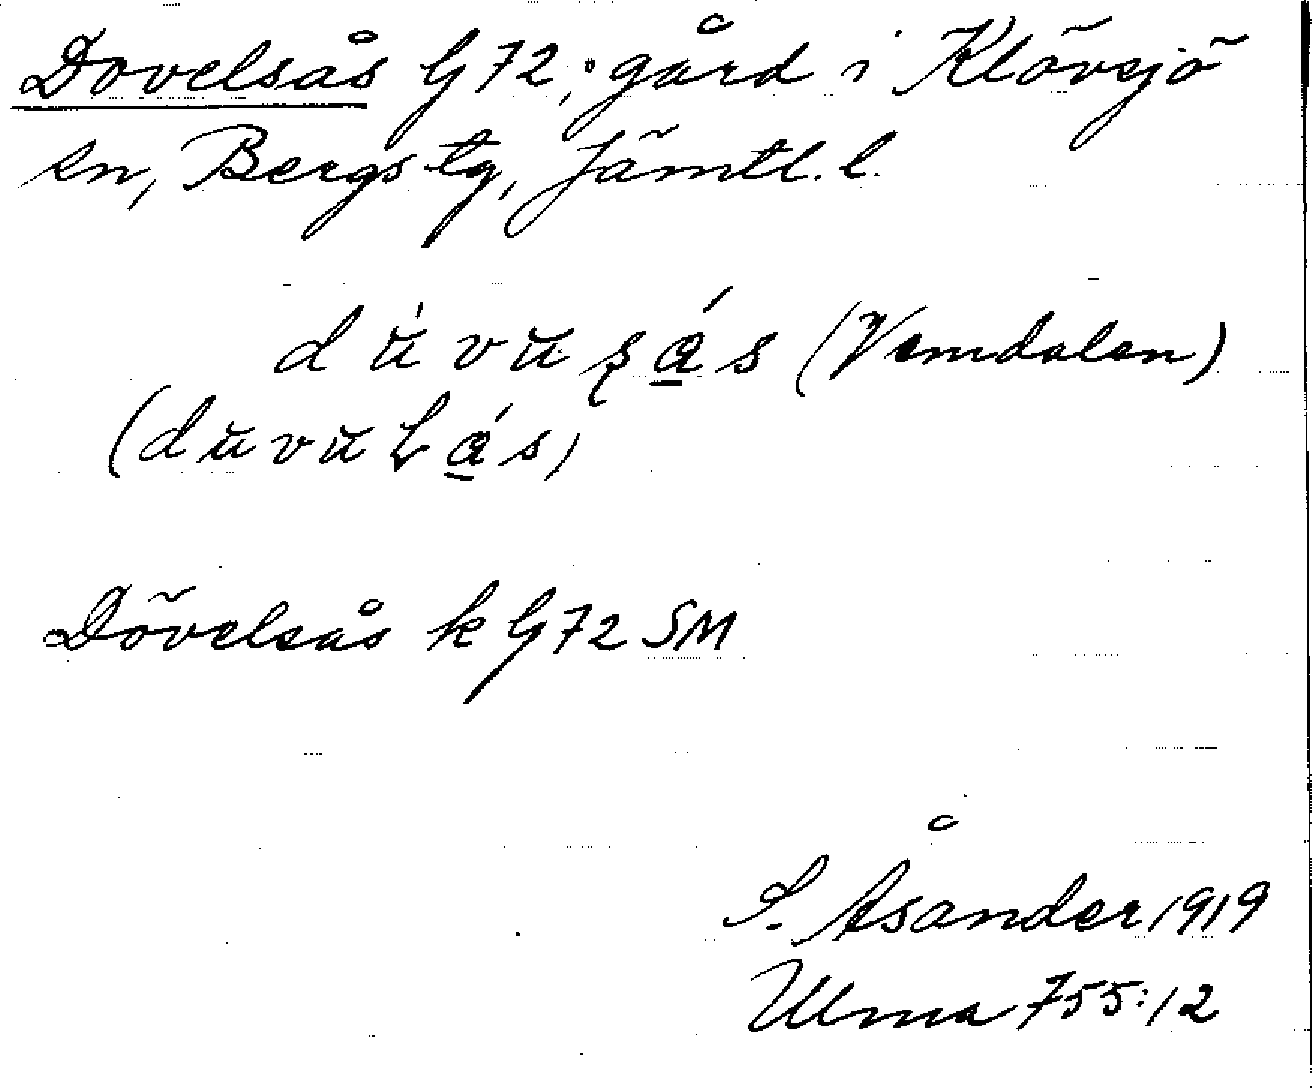 Dovelsås G72; gård i Klövsjö
sn, Bergs tg, Jämtl. l.
dŭ̀vŭʂá̱s (Vemdalen)
(dŭvŭɫá̱s)
Dövelsås k G72 SM
S. Åsander 1919
Ulma 755:12